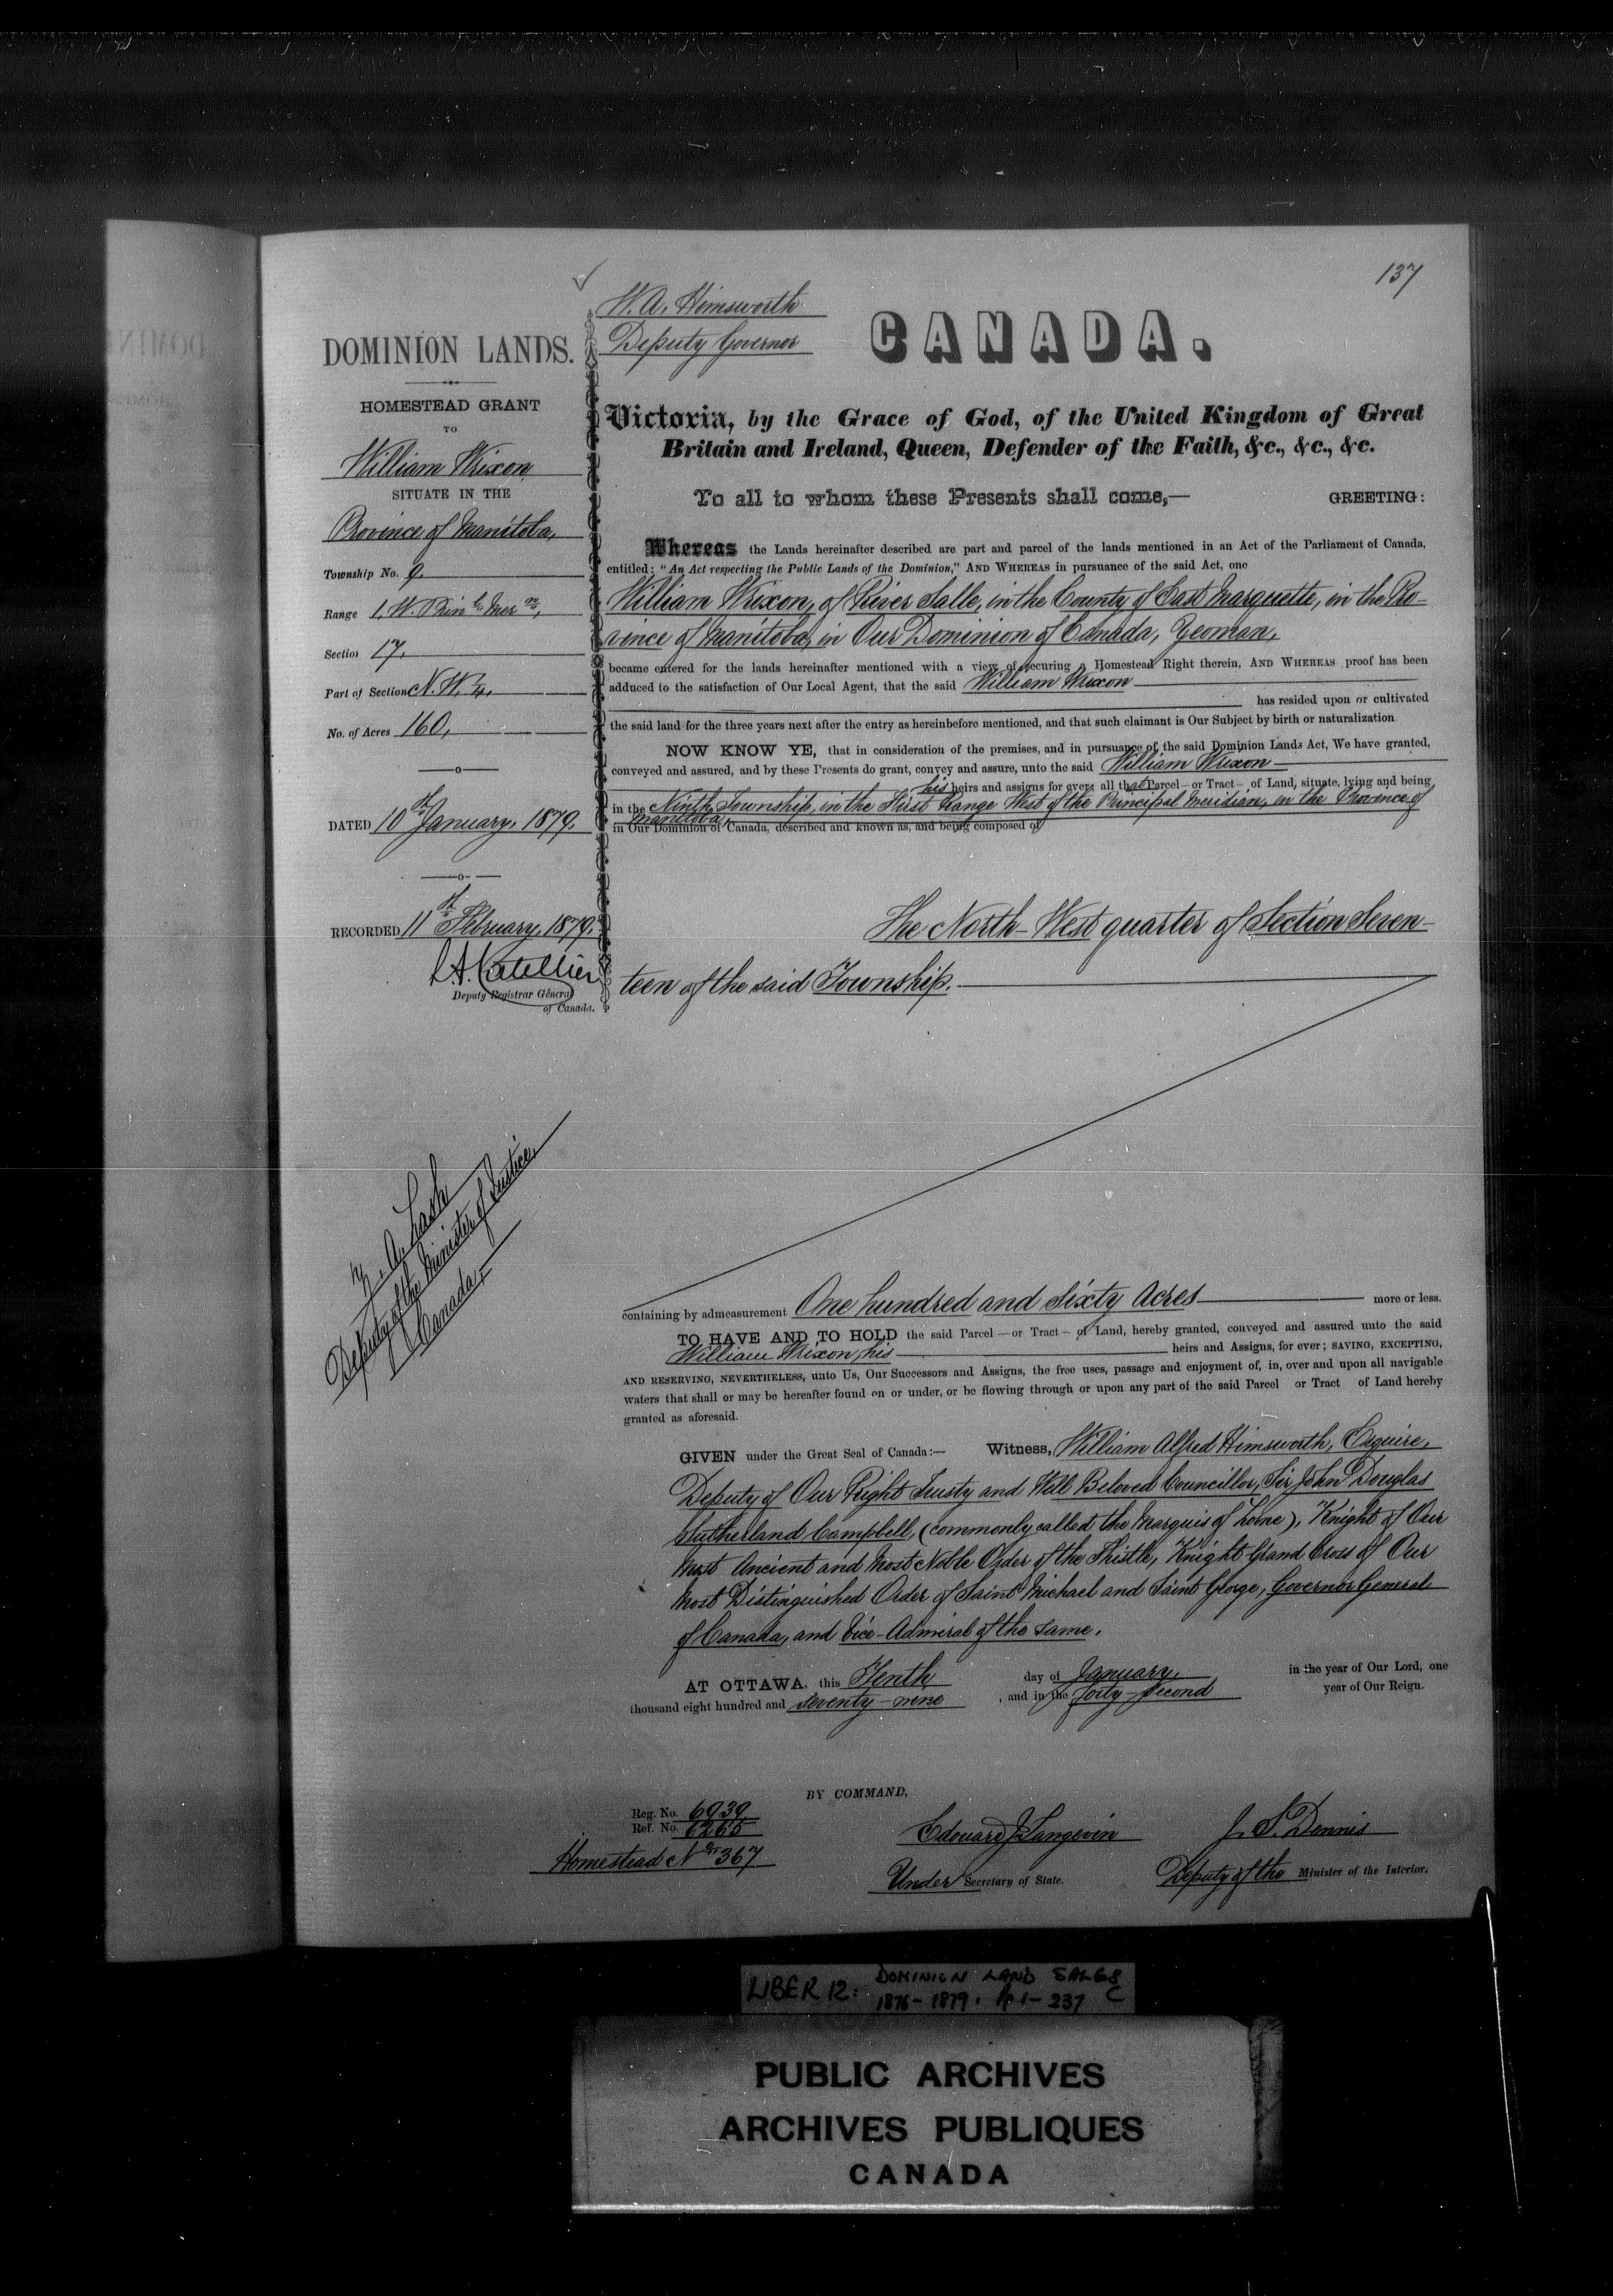 137
W. A. Himsworth
Deputy Governor
CANADA.
DOMINION LANDS.
HOMESTEAD GRANT
TO
William Wrixon
SITUATE IN THE
Province of Manitoba,
Township No. 9.
Range 1. W. Prin l Mer n,
Section 17.
Part of Section N. W. ¼.
No. of Acres 160,
DATED 10th January, 1879.
RECORDED 11th February, 1879.
L. A. Catellier
Deputy Registrar General
of Canada.
Z. A. Lash
Deputy of the Minister of Justice,
Canada,
Victoria, by the Grace of God, of the United Kingdom of Great
Britain and Ireland, Queen, Defender of the Faith, &c., &c., &c.
To all to whom these Presents shall come,— GREETING:
Whereas the Lands hereinafter described are part and parcel of the lands mentioned in an Act of the Parliament of Canada,
entitled: "An Act respecting the Public Lands of the Dominion," AND WHEREAS in pursuance of the said Act, one
William Wrixon, of River Salle, in the County of East Marquette, in the Pro-
vince of Manitoba, in Our Dominion of Canada, Yeoman,
became entered for the lands hereinafter mentioned with a view of securing a Homestead Right therein, AND WHEREAS proof has been
adduced to the satisfaction of Our Local Agent, that the said William Wrixon
has resided upon or cultivated
the said land for the three years next after the entry as hereinbefore mentioned, and that such claimant is Our Subject by birth or naturalization
NOW KNOW YE, that in consideration of the premises, and in pursuance of the said Dominion Lands Act, We have granted,
conveyed and assured, and by these Presents do grant, convey and assure, unto the said William Wrixon
his heirs and assigns for ever; all that Parcel—or Tract—of Land, situate, lying and being
in the Ninth Township, in the First Range West of the Principal Meridian, in the Province of
Manitoba,
in Our Dominion of Canada, described and known as, and being composed of
The North-West quarter of Section Seven-
teen of the said Township.
containing by admeasurement One hundred and Sixty Acres more or less.
TO HAVE AND TO HOLD the said Parcel—or Tract—of Land, hereby granted, conveyed and assured unto the said
William Wrixon, his heirs and Assigns, for ever; SAVING, EXCEPTING,
AND RESERVING, NEVERTHELESS, unto Us, Our Successors and Assigns, the free uses, passage and enjoyment of, in, over and upon all navigable
waters that shall or may be hereafter found on or under, or be flowing through or upon any part of the said Parcel or Tract of Land hereby
granted as aforesaid.
GIVEN under the Great Seal of Canada:— Witness, William Alfred Himsworth, Esquire,
Deputy of Our Right Trusty and Well Beloved Councillor, Sir John Douglas
Sutherland Campbell, (commonly called the Marquis of Lorne), Knight of Our
Most Ancient and Most Noble Order of the Thistle, Knight Grand Cross of Our
Most Distinguished Order of Saint Michael and Saint George, Governor General
of Canada, and Vice-Admiral of the same.
AT OTTAWA, this Tenth day of January, in the year of Our Lord, one
thousand eight hundred and seventy-nine, and in the forty-second year of Our Reign.
BY COMMAND,
Reg. No. 6939
Ref. No. 6265
Homestead No. 367
Edouard J. Langevin
Under Secretary of State.
J. S. Dennis
Deputy of the Minister of the Interior.
LIBER 12: DOMINION LAND SALES
1876-1879. pp 1-237 C
PUBLIC ARCHIVES
ARCHIVES PUBLIQUES
CANADA